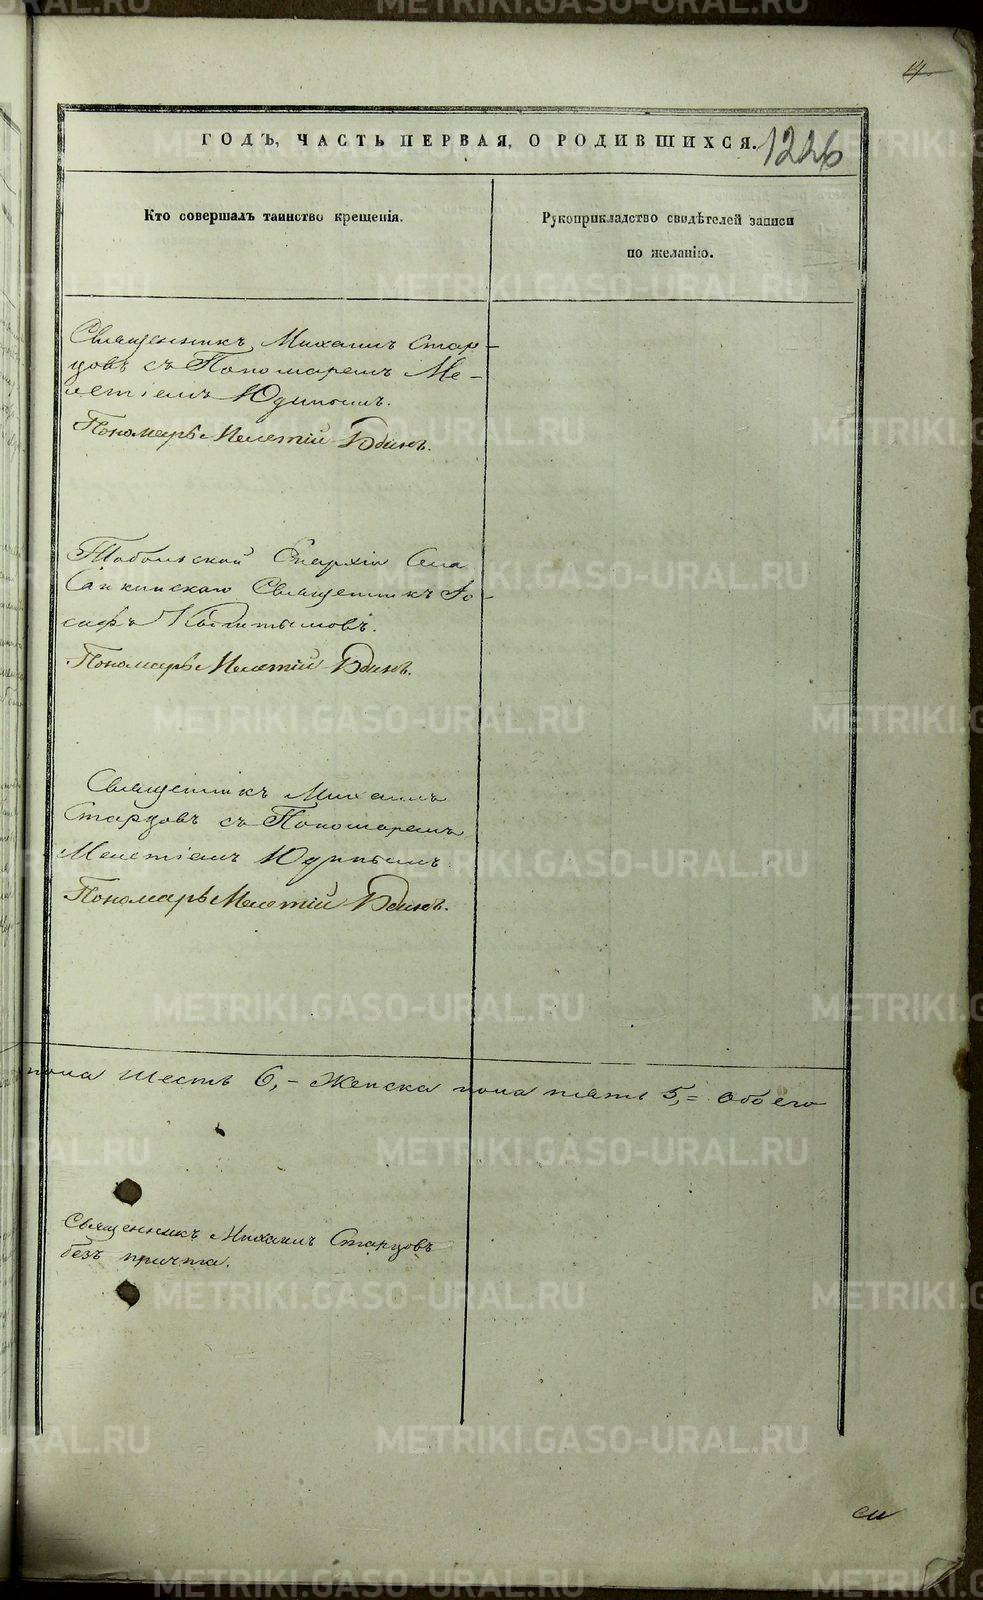 14
ГОДЪ, ЧАСТЬ ПЕРВАЯ, О РОДИВШИХСЯ.
1226
Кто совершалъ таинство крещенія.
Рукоприкладство свидѣтелей записи
по желанію.
Священникъ Михаилъ Стар-
цовъ съ Пономаремъ Ме-
летіемъ Юдинымъ.
Пономарь Мелетій Юдинъ.
Тобольской Епархіи Села
Священникъ Іо-
сифъ
Пономарь Мелетій Юдинъ.
Священникъ Михаилъ
Старцовъ съ Пономаремъ
Мелетіемъ Юдинымъ.
Пономарь Мелетій Юдинъ.
пола шесть 6,- Женска пола пять 5,= Обоего
Священникъ Михаилъ Старцовъ
безъ причта.
METRIKI.GASO-URAL.RU